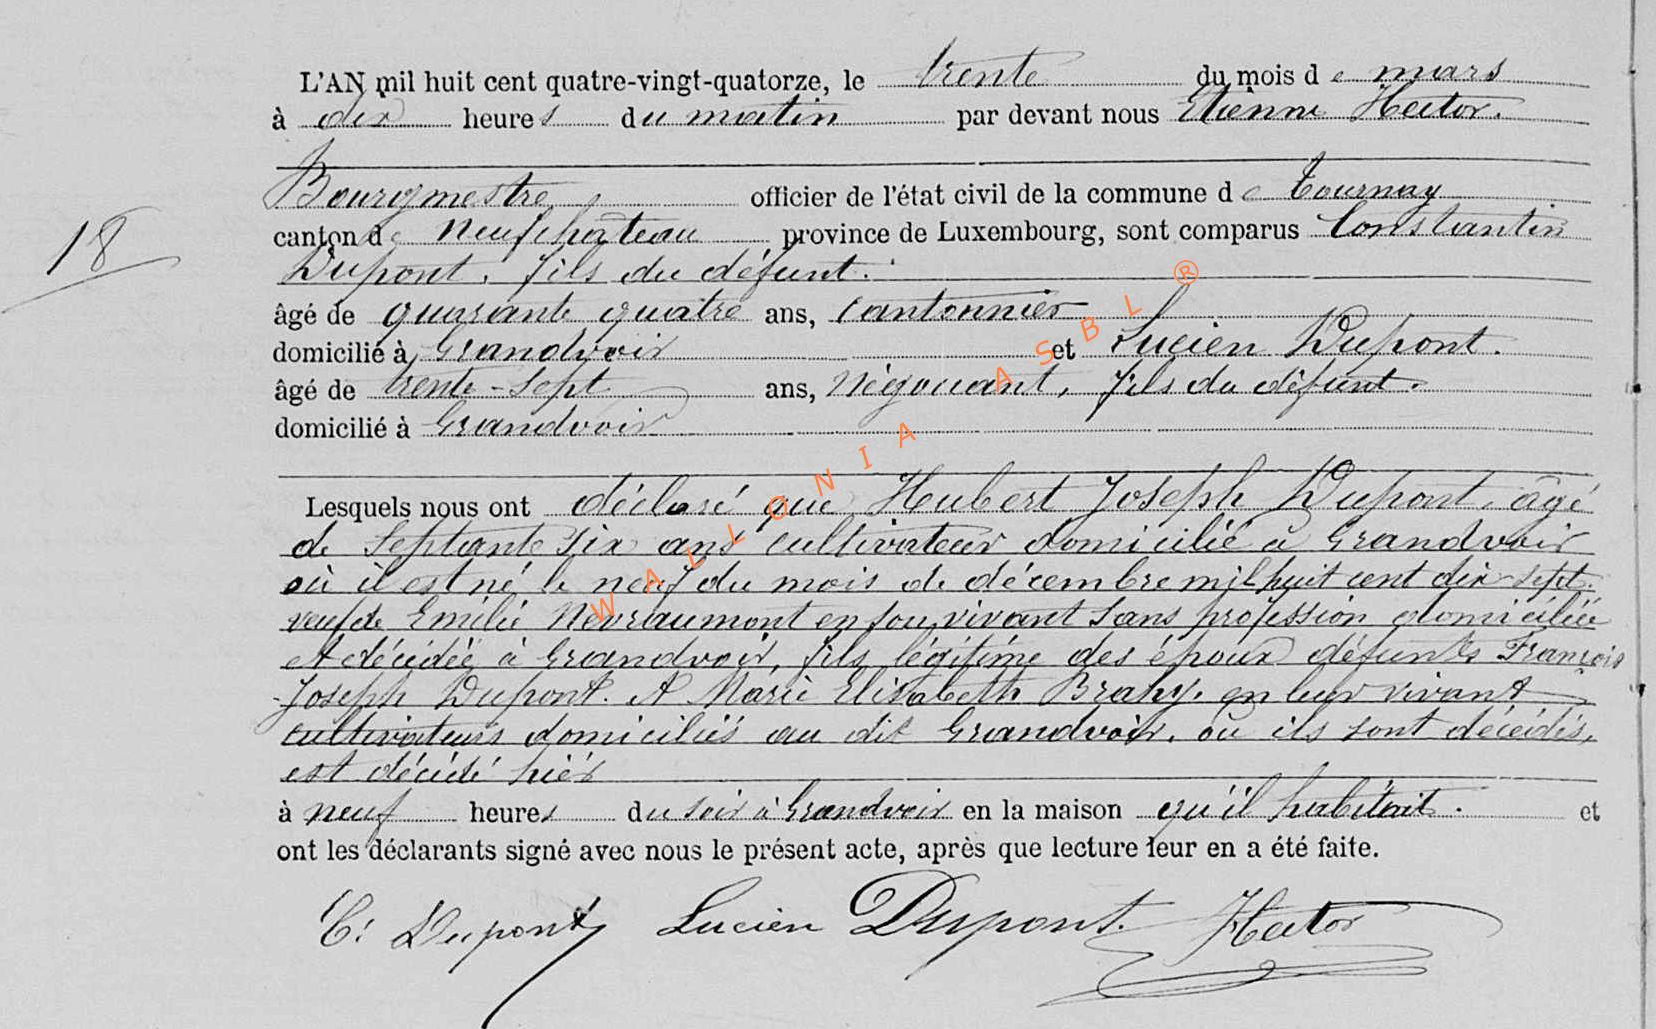 L'AN mil huit cent quatre-vingt-quatorze, le trente du mois de mars
à dix heures du matin par devant nous Etienne Hector.
Bourgmestre officier de l'état civil de la commune de Tournay
18
canton de Neufchâteau province de Luxembourg, sont comparus Constantin
Dupont, fils du défunt.
âgé de quarante quatre ans, cantonnier
domicilié à Grandvoir et Lucien Dupont.
âgé de trente-sept ans, négociant, fils du défunt.
domicilié à Grandvoir
Lesquels nous ont déclaré que Hubert Joseph Dupont, âgé
de septante six ans cultivateur domicilié à Grandvoir
où il est né le neuf du mois de décembre mil huit cent dix-sept.
veuf de Emilie Nevraumont en son vivant sans profession domiciliée
et décédée à Grandvoir, fils légitime des époux défunts François
Joseph Dupont. et Marie Elisabeth Brahy. en leur vivant
cultivateurs domiciliés au dit Grandvoir, où ils sont décédés,
est décédé hier
à neuf heures du soir à Grandvoir en la maison qu'il habitait. et
ont les déclarants signé avec nous le présent acte, après que lecture leur en a été faite.
C. Dupont Lucien Dupont. Hector
WALLONIA ASBL ®